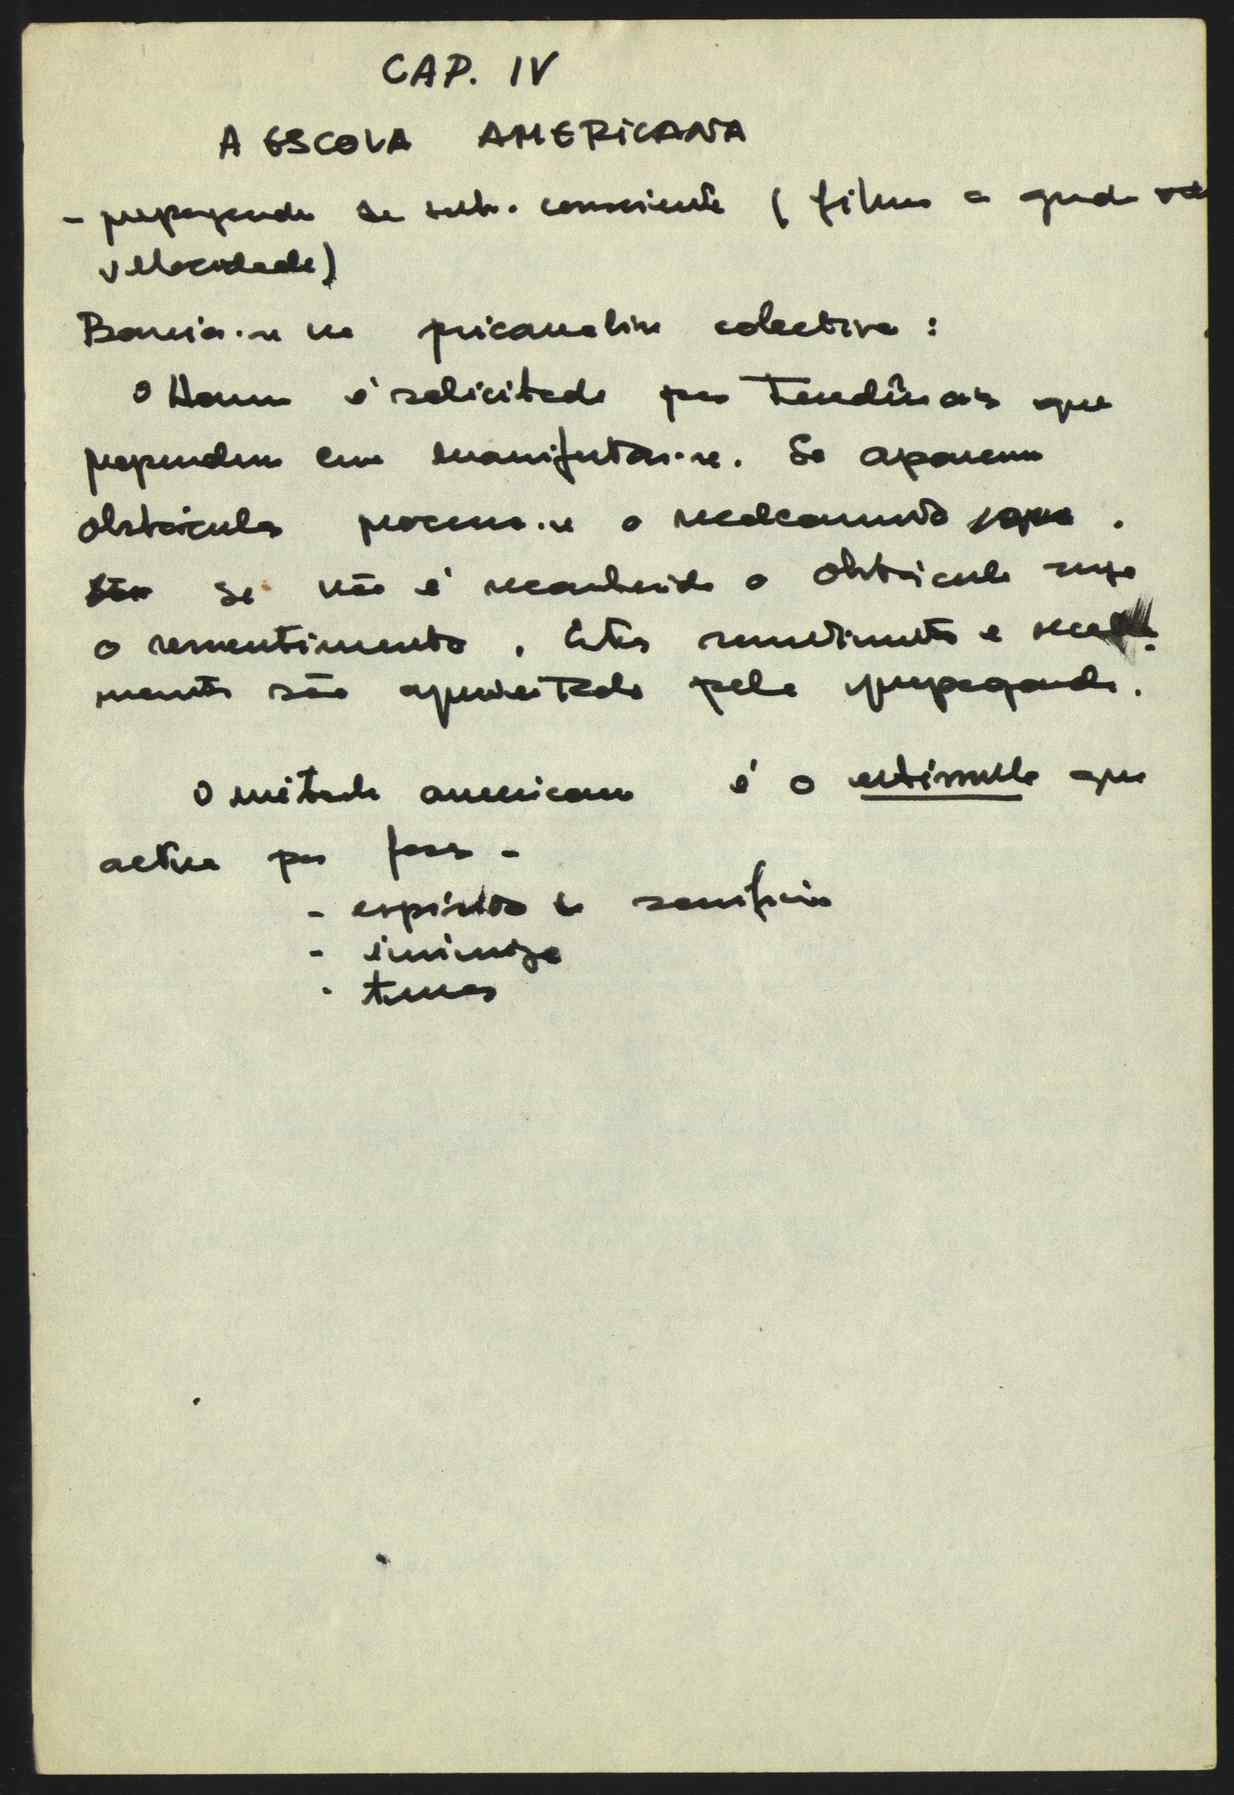 CAP. IV
A ESCOLA AMERICANA
- propaganda de sub-consciente (filme a grande
velocidade)
Baseia-se na psicanalise colectiva:
O Homem é solicitado por Tendências que
propendem em manifestar-se. Se aparecem
obstáculos processa-se o recalcamento.
Se não é reconhecido o obstáculo surge
o ressentimento. Estes ressentimentos e recalca-
mentos são aproveitados pela propaganda.
O método americano é o estímulo que
activa por fases -
- espírito de sacrifício
- inimigo
- temas